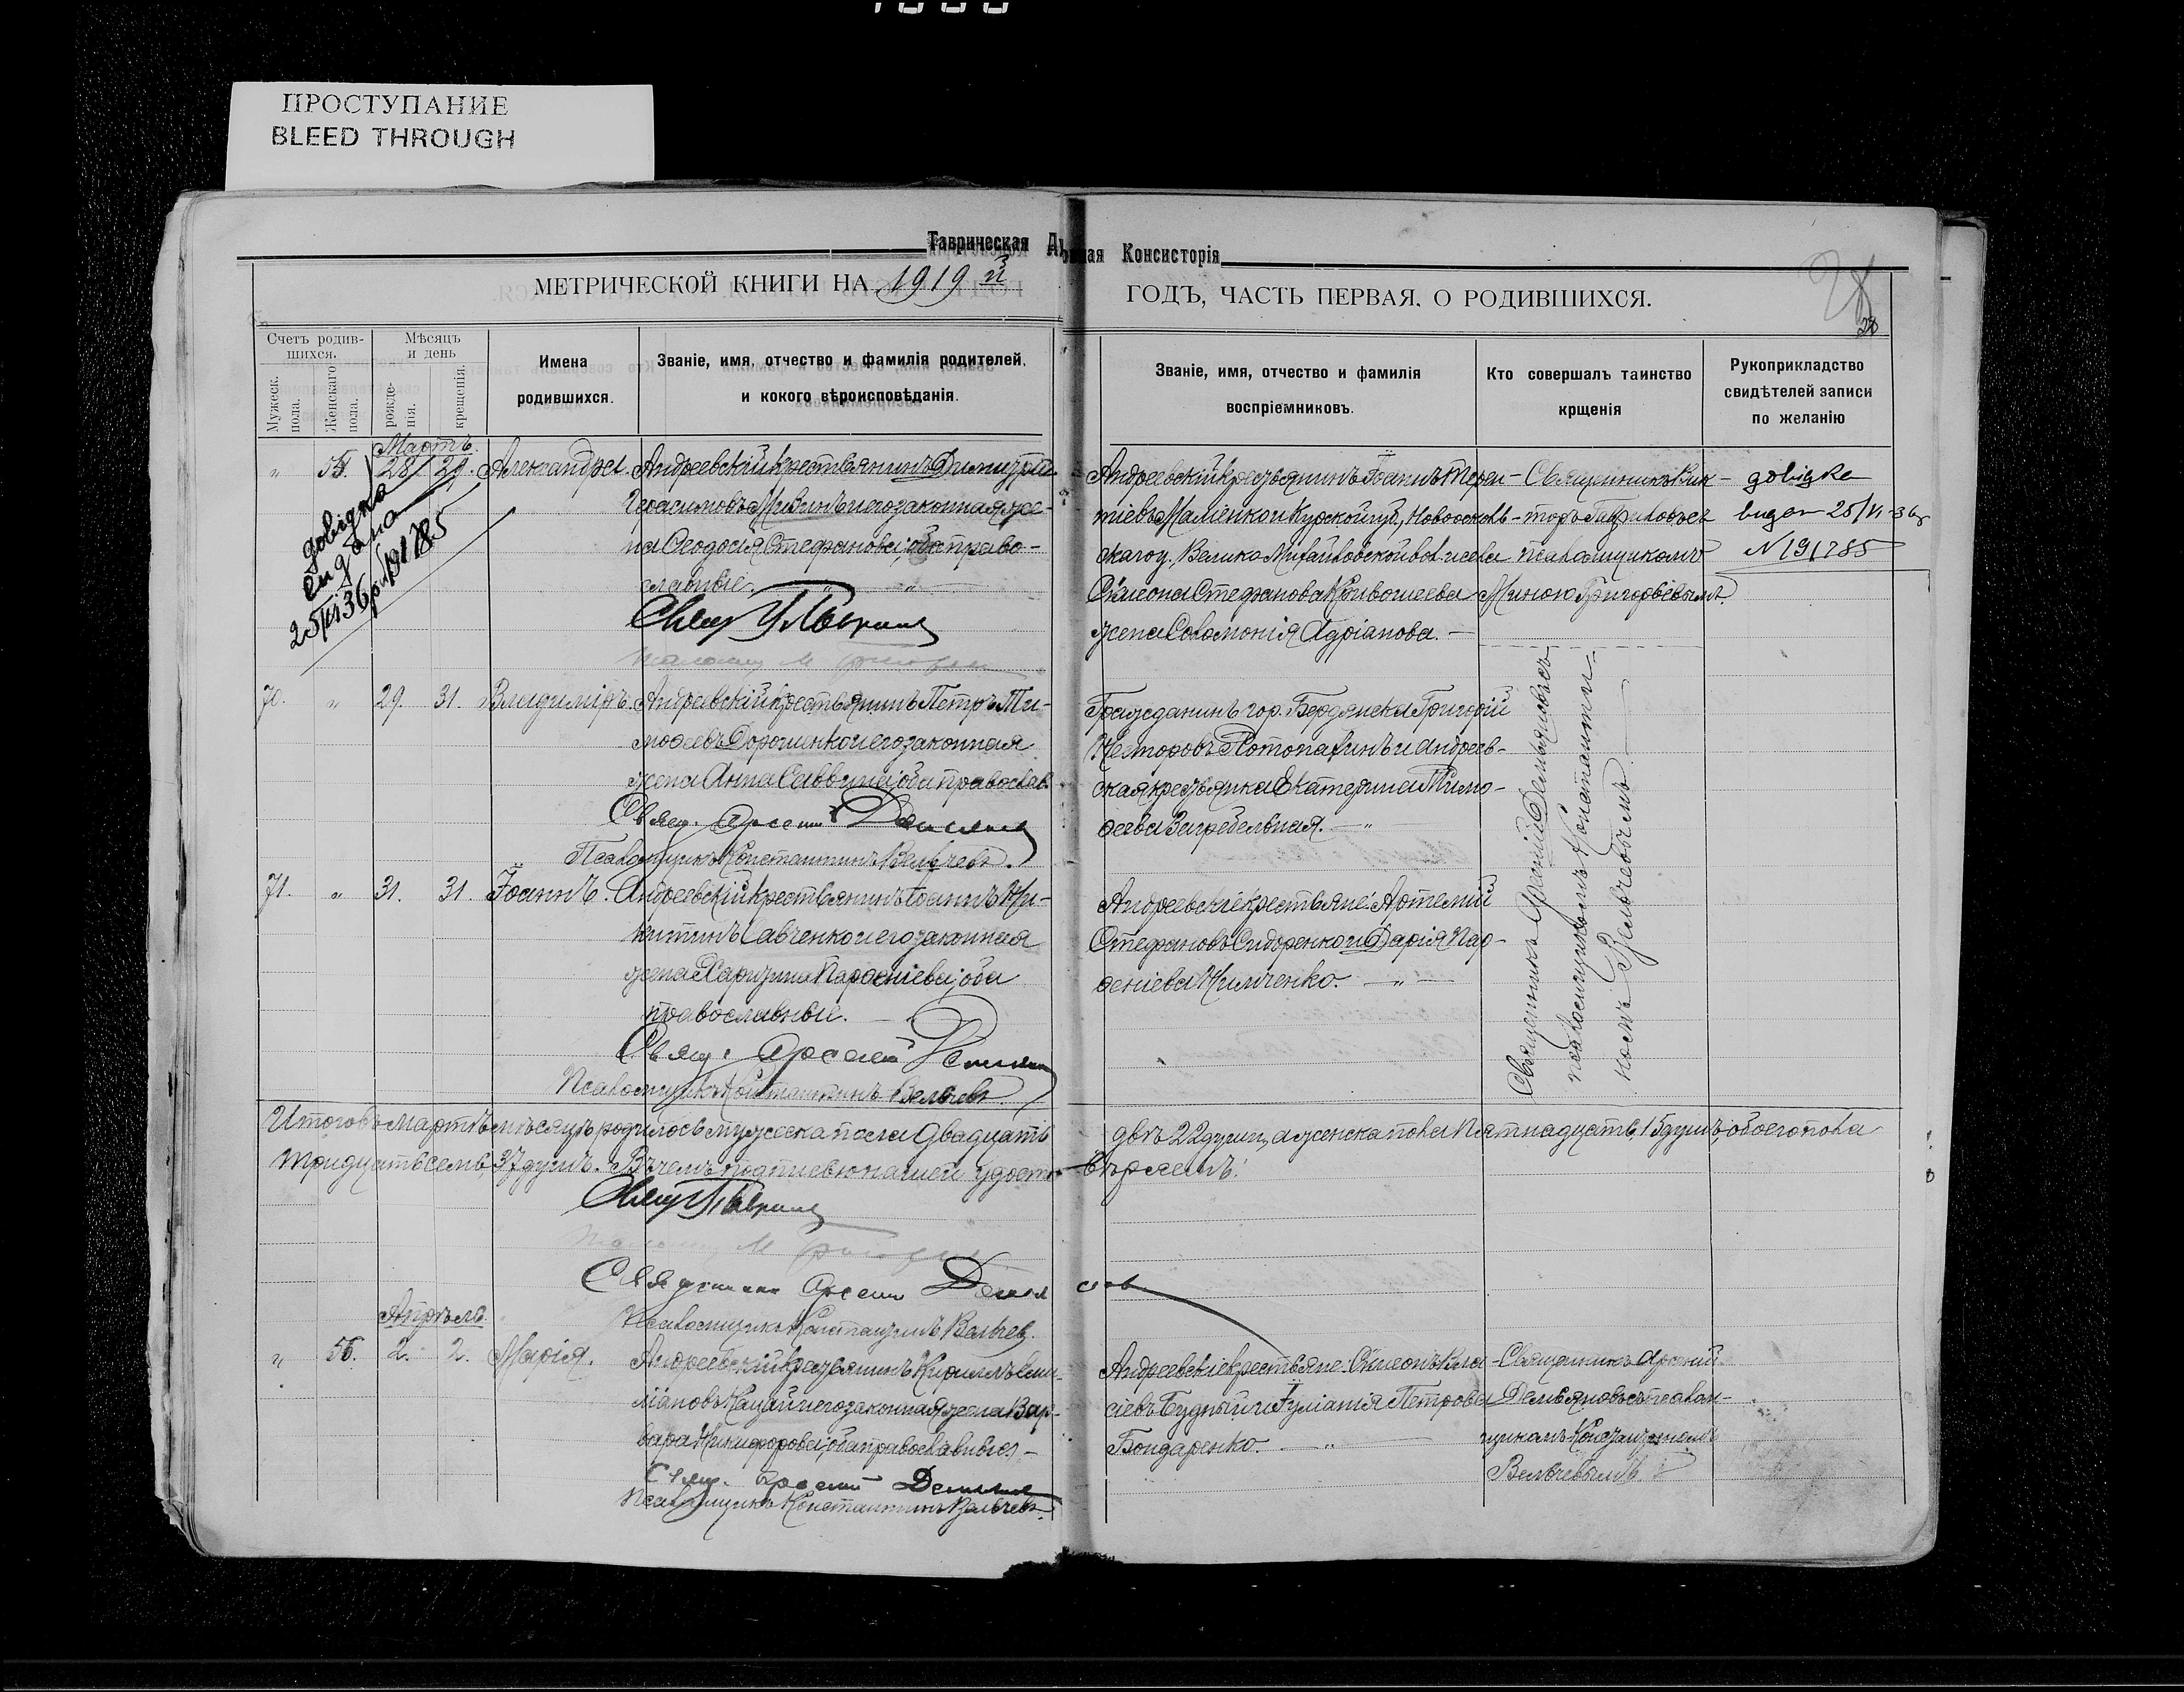 ПРОСТУПАНИЕ
BLEED THROUGH
Таврическая Духовная Консисторія
МЕТРИЧЕСКОЙ КНИГИ НА 1919 й
ГОДЪ, ЧАСТЬ ПЕРВАЯ, О РОДИВШИХСЯ.
28
Счетъ родив-
шихся.
Мужеск.
пола.
Женскаго
пола.
Мѣсяцъ
и день
рожде-
нія.
крещенія.
Имена
родившихся.
Званіе, имя, отчество и фамилія родителей,
и кокого вѣроисповѣданія.
Званіе, имя, отчество и фамилія
воспріемниковъ.
Кто совершалъ таинство
крщенія
Рукоприкладство
свидѣтелей записи
по желанію
Мартъ.
" 55. 28 29. Александра.
Андреевскій крестьянинъ Димитрій
Герасимовъ Мизинъ и его законная же-
на Ѳеодосія Стефанова; оба право-
славные.
довідка
видана
25/VI 36 р. №191785
Андреевскій крестьянинъ Іоаннъ Терен-
тіевъ Маленко и Курской губ., Новоосколь-
скаго у., Велико-Михайловской вол. и села
Симеона Стефанова Кривошеева
жена Соломонія Адріанова. —
Священникъ Вик-
торъ Гавриловъ съ
псаломщикомъ
Миною Григорьевымъ.
довідка
видан 25/VI-36 р
N 191785
70. " 29. 31. Владиміръ.
Андреевскій крестьянинъ Петръ Ти-
моѳеевъ Дорошенко и его законная
жена Анна Саввина; оба православ.
Свящ. Арсеній Демьянов
Псаломщикъ Константинъ Вельчевъ.
Гражданинъ гор. Бердянска Григорій
Несторовъ Потопахинъ и Андреев-
ская крестьянка Екатерина Тимо-
ѳеева Загребельная. — "
71. " 31. 31. Іоаннъ.
Андреевскій крестьянинъ Іоаннъ Ни-
китинъ Савченко и его законная
жена Харитина Парѳеніева; оба
православные.
Свящ. Арсеній Демьянов
Псаломщикъ Константинъ Вельчевъ
Андреевскіе крестьяне: Артемій
Стефановъ Сидоренко и Дарія Пар-
ѳеніева Нимченко. — " —
Священникъ Арсеній Демьяновъ съ
псаломщикомъ Константи-
номъ Вельчевымъ.
Итого въ мартѣ мѣсяцѣ родилось мужеска пола двадцать двѣ 22 души, а женска пола пятнадцать, 15 душъ, обоего пола
тридцать семь, 37 душъ. Въ чемъ подписью нашей удостовѣряемъ:
Священникъ Арсеній Демьянов
Псаломщикъ Константинъ Вельчев.
Апрѣль.
" 56. 2. 2. Марія.
Андреевскій крестьянинъ Кириллъ Еми-
ліановъ Кацай и его законная жена Вар-
вара Никифорова; оба православные —
Свящ. Арсеній Демьянов
Псаломщикъ Константинъ Вельчевъ.
Андреевскіе крестьяне: Симеонъ Вла-
сіевъ Будный и Іуліанія Петрова
Бондаренко. — " —
Священникъ Арсеній
Демьяновъ съ псалом-
щикомъ Константиномъ
Вельчевымъ.